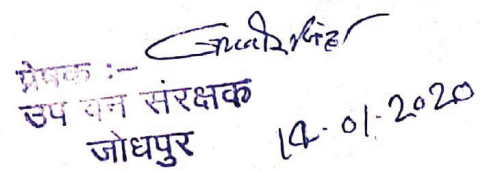 प्रेषक :-
उप वन संरक्षक
जोधपुर 14.01.2020